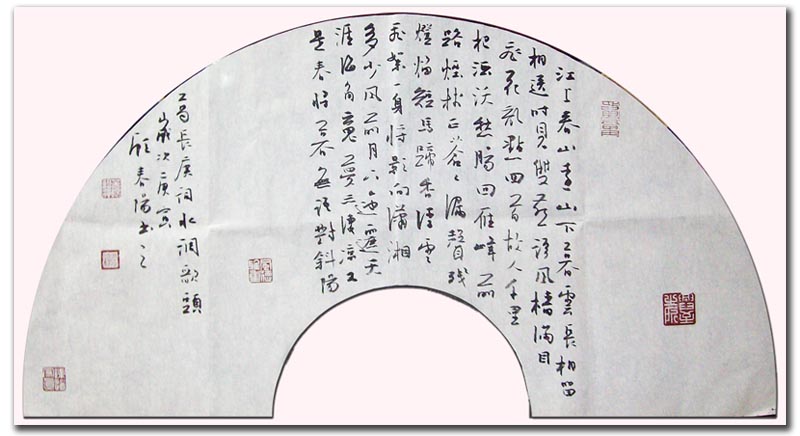 江上春山遠山下暮雲長相留
相送時見雙燕語風檣滿目
飛花萬點回首故人千里
把酒沃愁腸回雁峰前
路煙樹正蒼々漏聲殘
燈焰短馬蹄香浮雲
飛絮一身將影向瀟湘
多少風前月下迤邐天
涯海角魂夢亦淒涼又
是春將暮無語對斜陽
葛長庚詞水調歌頭
歲次庚寅
春陽書